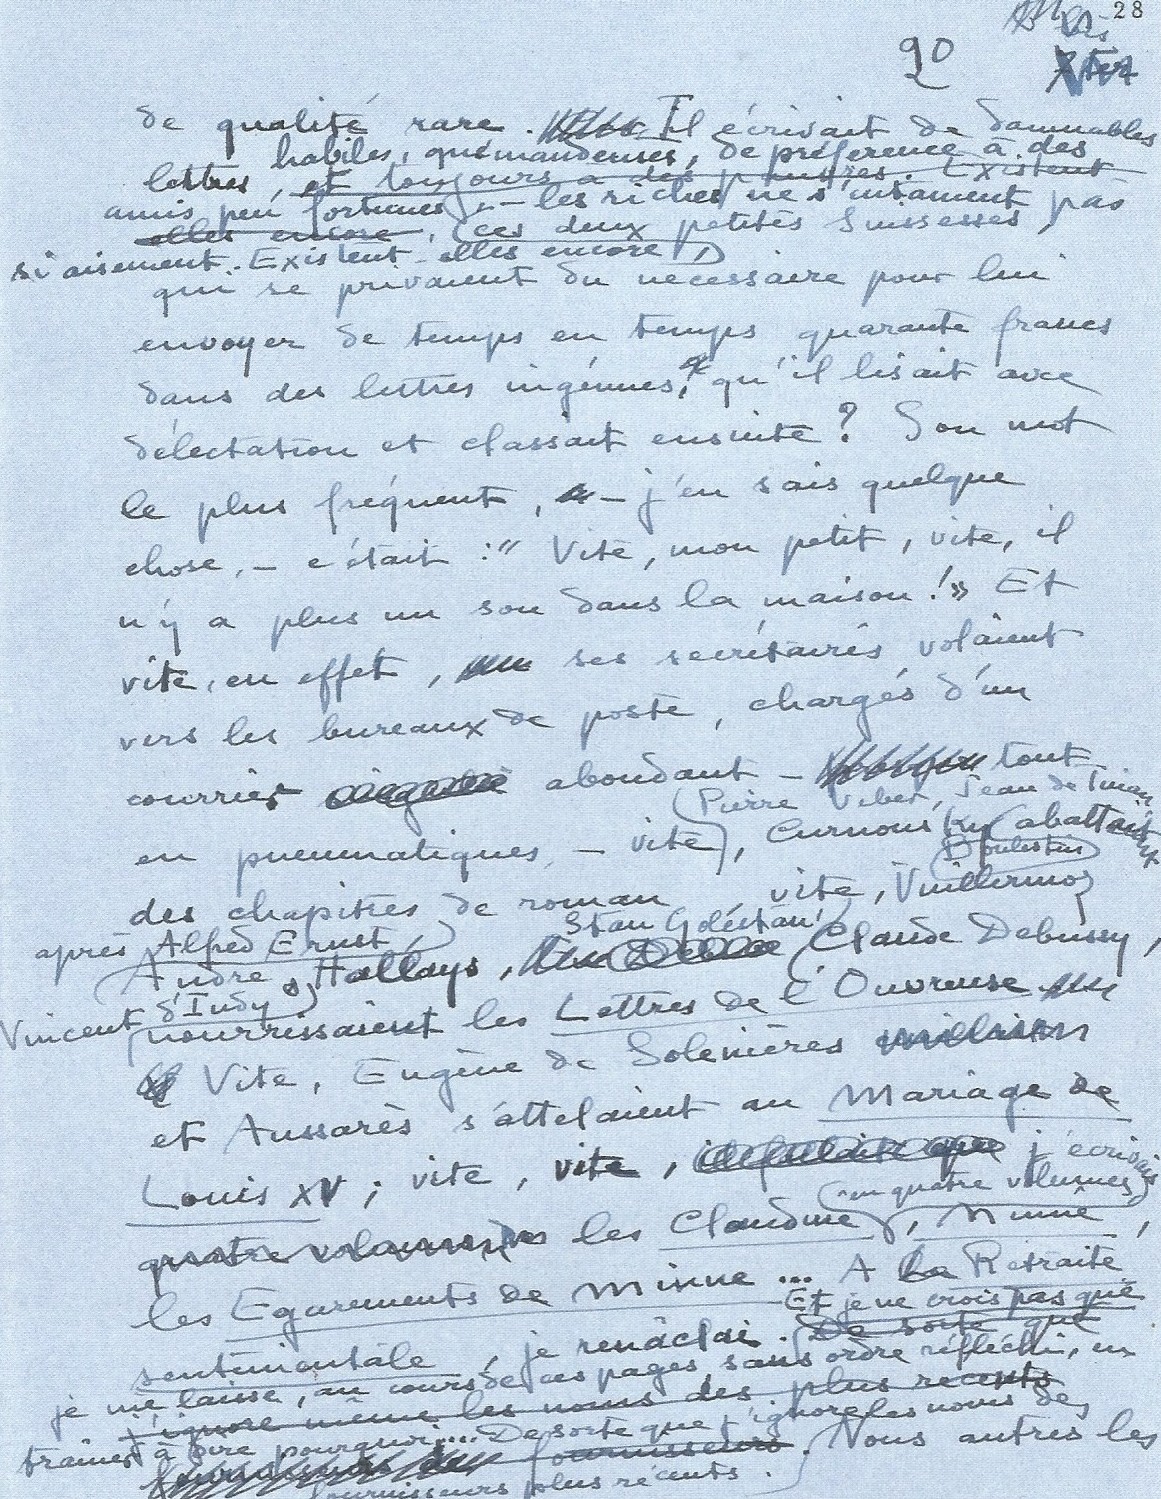 28
90
de qualité rare. Il écrivait de damnables
habiles, quémandeuses, de préférence à des
lettres, et toujours à des pauvres. Existent
amis peu fortunés, — les riches ne s'entament pas
elles encore, ces deux petites Suissesses,
si aisément. Existent-elles encore,
qui se privaient du nécessaire pour lui
envoyer de temps en temps quarante francs
dans des lettres ingénues, qu'il lisait avec
délectation et classait ensuite? Son mot
le plus fréquent, — j'en sais quelque
chose, — c'était : "Vite, mon petit, vite, il
n'y a plus un sou dans la maison!» Et
vite, en effet, ses secrétaires volaient
vers les bureaux de poste, chargés d'un
courrier abondant — tout
Pierre Veber, Jean de Tinan,
en pneumatiques, — vite, Curnonsky abattait
Boulestin
des chapitres de roman, vite, Vuillermoz
Stan Golestan
après Alfred Ernst,
André Hallays, Claude Debussy,
Vincent d'Indy
nourrissaient les Lettres de l'Ouvreuse
Vite, Eugène de Solenières
et Aussarès s'attelaient au Mariage de
Louis XV; vite, vite, j'écrivais
en quatre volumes
quatre volumes les Claudine, Minne,
les Egarements de Minne... A la Retraite
Et je ne crois pas que
sentimentale, je renâclai. De sorte que
je me laisse, au cours de ces pages sans ordre réfléchi, en-
j'ignore même les noms des plus récents
traîner à dire pourquoi.... De sorte que j'ignore les noms des
fournisseurs. Nous autres les
fournisseurs plus récents.